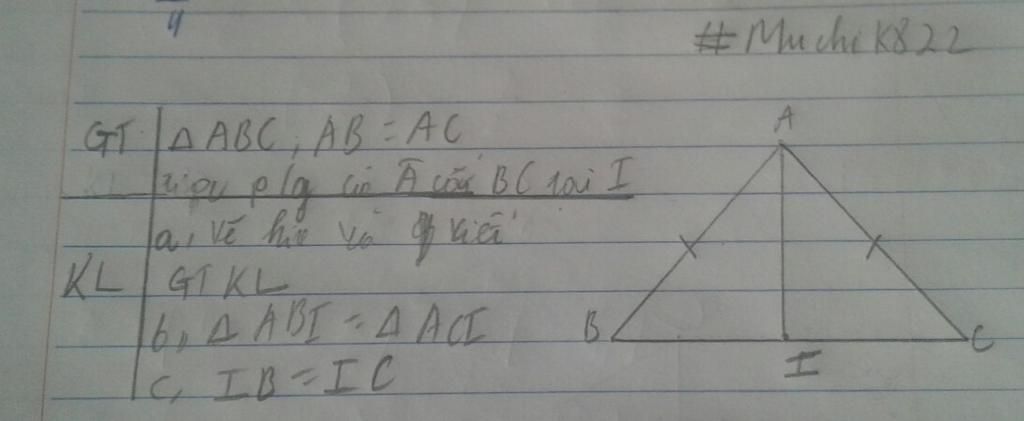 4
#MuchiK822
GT ΔABC, AB = AC
p/g của A cắt BC tại I
a, vẽ hình và viết
KL GT KL
b, ΔABI = ΔACI
c, IB = IC
A
B
C
I